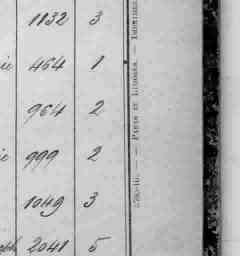 1132 3
ie 454 1
964 2
ie 999 2
1049 3
2041 5
— PARIS ET LIMOGES. —